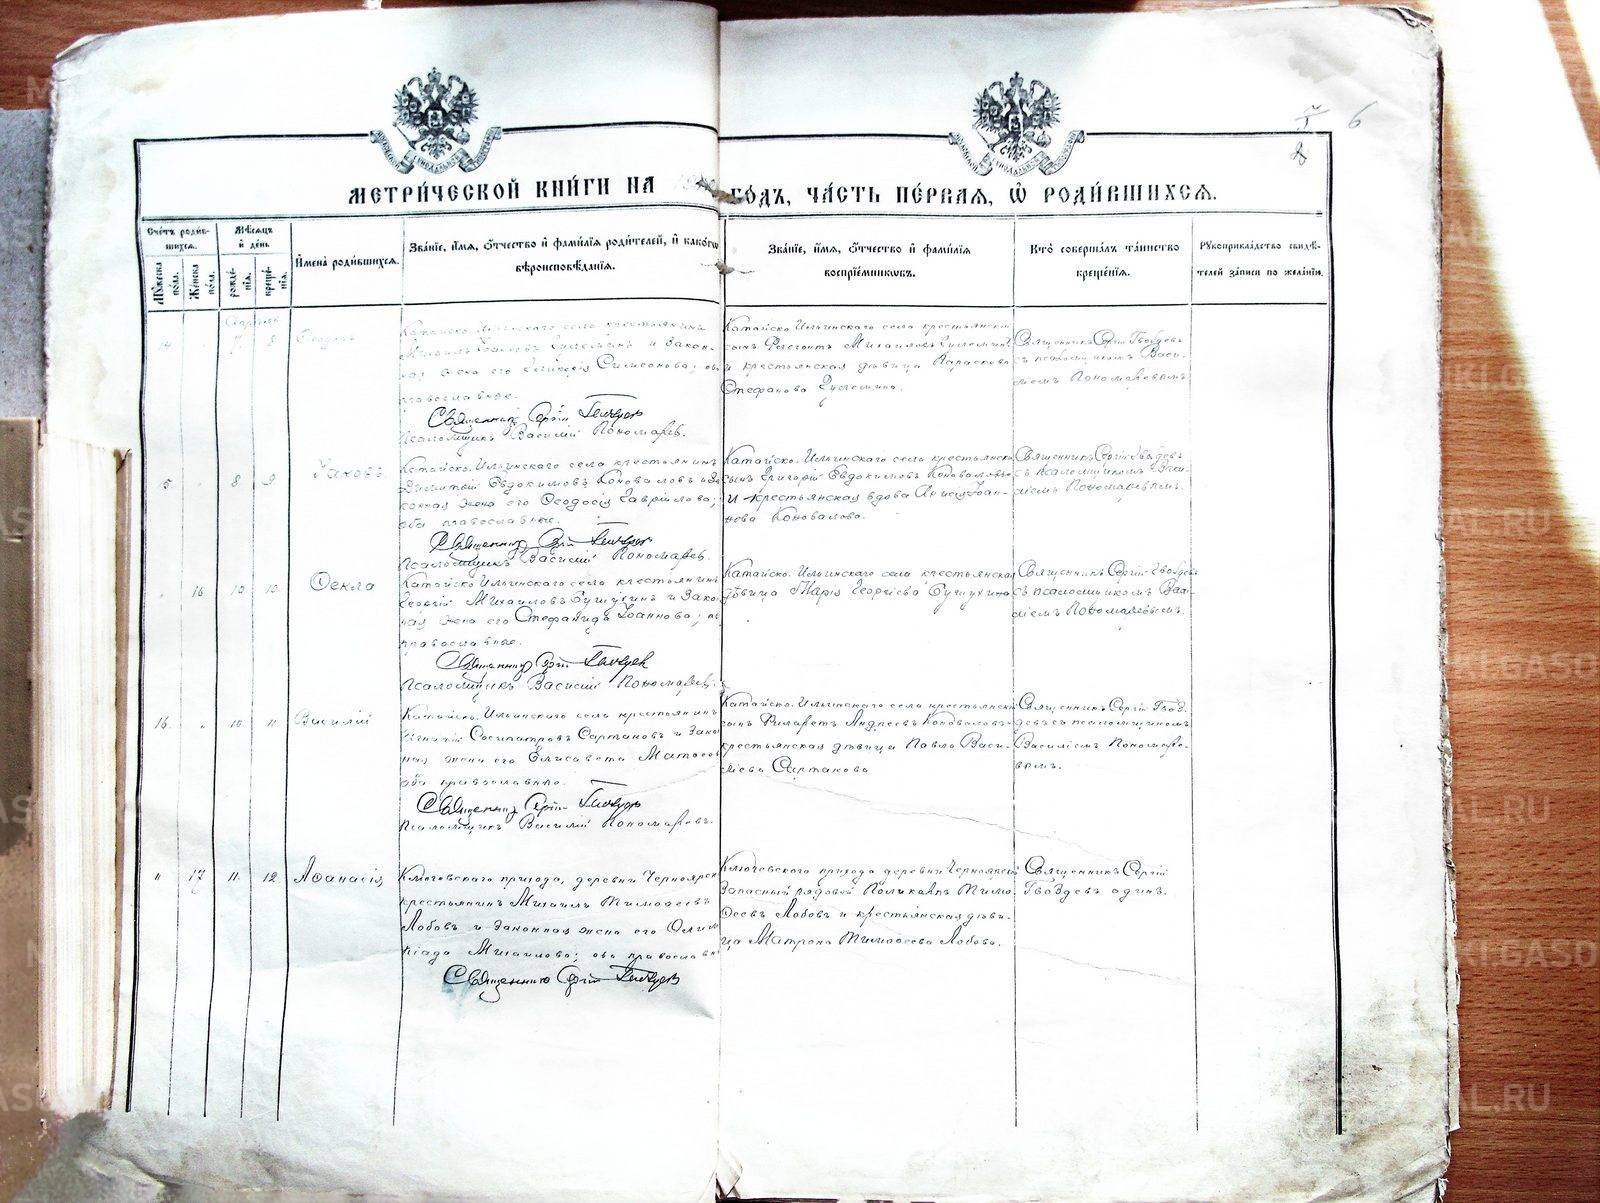 МЕТРИ́ЧЕСКОЙ КНИ́ГИ НА
ГОДЪ, ЧА́СТЬ ПЕ́РВАЯ, Ѽ РОДИ́ВШИХСЯ.
6
Сче́тъ роди́в-
шихся.
Мꙋ́жеска по́ла.
Же́нска по́ла.
Мѣ́сяцъ и҆ де́нь
рожде́-нїя.
креще́-нїя.
И҆мена̀ роди́вшихся.
Зва́нїе, и҆́мя, ѻ҆́тчество и҆ фами́лїя роди́телей, и҆ како́гѡ
вѣроисповѣ́данїя.
Зва́нїе, и҆́мя, ѻ҆́тчество и҆ фами́лїя
воспрїе́мникѡвъ.
Кто̀ соверша́лъ та́инство
креще́нїя.
Рꙋкоприкла́дство свидѣ́-
телей за́писи по жела́нїю.
Апрѣль
7
8
Катайско-Ильинскаго села крестьянинъ
и закон-
ная жена его Симеонова; оба
православные.
Священникъ Сергій Гвоздевъ
Псаломщикъ Василій Пономаревъ.
Катайско-Ильинскаго села крестьянскій
сынъ Михаиловъ
и крестьянская дѣвица Параскева
Стефанова
Священникъ Сергій Гвоздевъ
съ псаломщикомъ Васи-
ліемъ Пономаревымъ.
8
9
Іаковъ
Катайско-Ильинскаго села крестьянинъ
Димитрій Евдокимовъ Коноваловъ и за-
конная жена его Ѳеодосія Гаврилова;
оба православные.
Священникъ Сергій Гвоздевъ
Псаломщикъ Василій Пономаревъ.
Катайско-Ильинскаго села крестьянскій
сынъ Григорій Евдокимовъ Коноваловъ
и крестьянская вдова Анисія Іоан-
нова Коновалова.
Священникъ Сергій Гвоздевъ
съ псаломщикомъ Васи-
ліемъ Пономаревымъ.
16
10
10
Ѳекла
Катайско-Ильинскаго села крестьянинъ
Георгій Михаиловъ и зако
ная жена его Стефанида Іоаннова;
православные.
Священникъ Сергій Гвоздевъ
Псаломщикъ Василій Пономаревъ.
Катайско-Ильинскаго села крестьянская
дѣвица Марія Георгіева
Священникъ Сергій Гвоздевъ
съ псаломщикомъ Васи-
ліемъ Пономаревымъ.
16
10
11
Василій
Катайско-Ильинскаго села крестьянинъ
Игнатій Сосипатровъ Сартаковъ и зако
ная жена его Елисавета
оба православные.
Священникъ Сергій Гвоздевъ
Псаломщикъ Василій Пономаревъ.
Катайско-Ильинскаго села крестьянскій
сынъ Филаретъ Андреевъ Коноваловъ
крестьянская дѣвица Павла Васи-
ліева Сартакова
Священникъ Сергій Гвоз-
девъ съ псаломщикомъ
Василіемъ Пономаре-
вымъ.
17
11
12
Аѳанасія
Ключевскаго прихода, деревни
крестьянинъ Михаилъ Тимоѳеевъ
Лобовъ и законная жена его Олим
піада Михаилова; оба православн
Священникъ Сергій Гвоздевъ
Ключевскаго прихода деревни
Запасный рядовой Поликарпъ Тимо-
ѳеевъ Лобовъ и крестьянская дѣви-
ца Матрона Тимоѳеева Лобова.
Священникъ Сергій
Гвоздевъ одинъ.